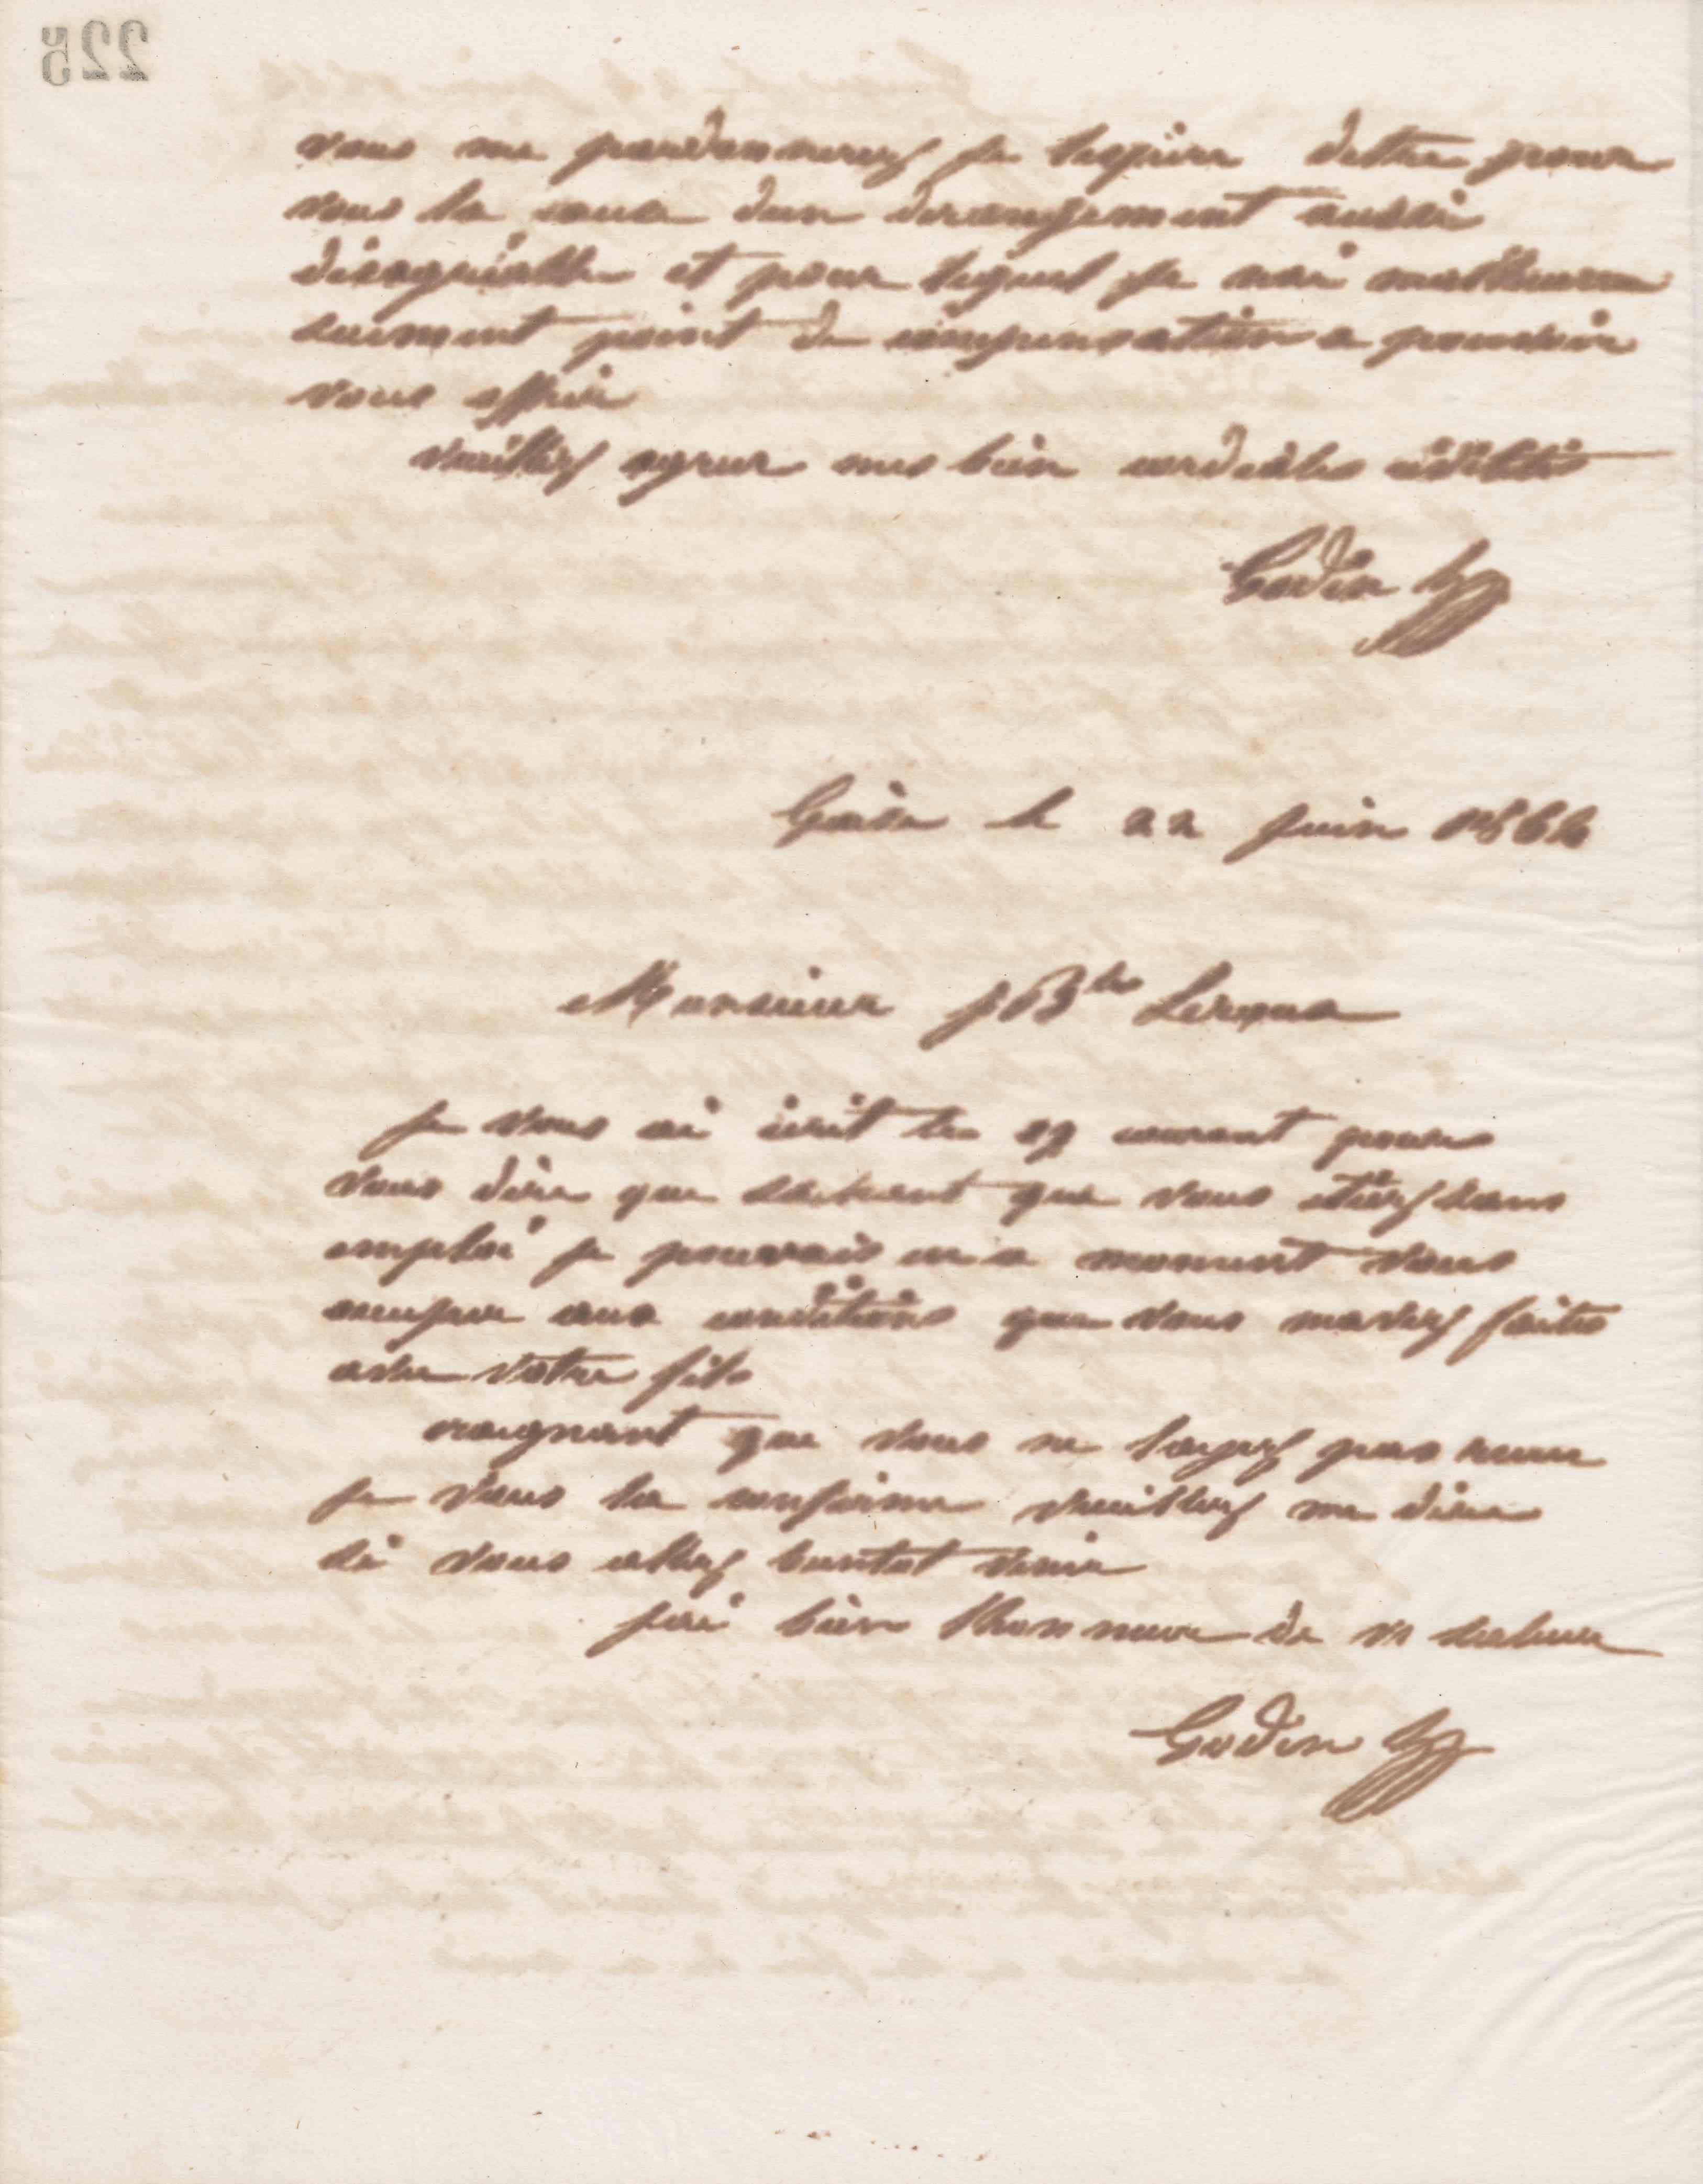 225
vous me pardonnerez je lespère dettre pour
vous la cause dun derangement aussi
désagréable et pour lequel je nai malheureu
sement point de compensation a pouvoir
vous offrir
veuillez agreer mes bien cordiales
Godin
Guise le 22 juin 1866
Monsieur J Bte Leroux
je vous ai écrit le courant pour
vous dire que sachant que vous étiez sans
emploi je pouvais en ce moment vous
occuper aux conditions que vous maviez faites
avec votre fils
craignant que vous ne layez pas recue
je vous la confirme veuillez me dire
si vous allez bientot venir
jai bien lhonneur de vs saluer
Godin